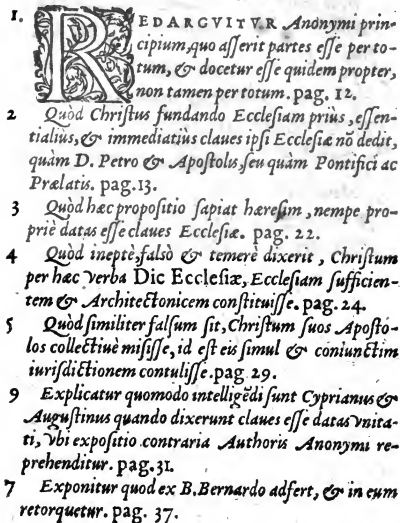 1. REDARGVITVR Anonymi prin-
cipium, quo asserit partes esse per to-
tum, & docetur esse quidem propter,
non tamen per totum. pag. 12.
2 Quòd Christus fundando Ecclesiam prius, essen-
tialius, & immediatius claues ipsi Ecclesiæ nō dedit,
quàm D. Petro & Apostolis, seu quàm Pontifici ac
Prælatis. pag. 13.
3 Quòd hæc propositio sapiat hæresim, nempe pro-
priè datas esse claues Ecclesiæ. pag. 22.
4 Quòd ineptè, falsò & temerè dixerit, Christum
per hæc verba Dic Ecclesiæ, Ecclesiam sufficien-
tem & Architectonicem constituisse. pag. 24.
5 Quòd similiter falsum sit, Christum suos Aposto-
los collectiuè misisse, id est eis simul & coniunctim
iurisdictionem contulisse. pag. 29.
9 Explicatur quomodo intelligēdi sunt Cyprianus &
Augustinus quando dixerunt claues esse datas vnita-
ti, vbi expositio contraria Authoris Anonymi re-
prehenditur. pag. 31.
7 Exponitur quod ex B. Bernardo adfert, & in eum
retorquetur. pag. 37.